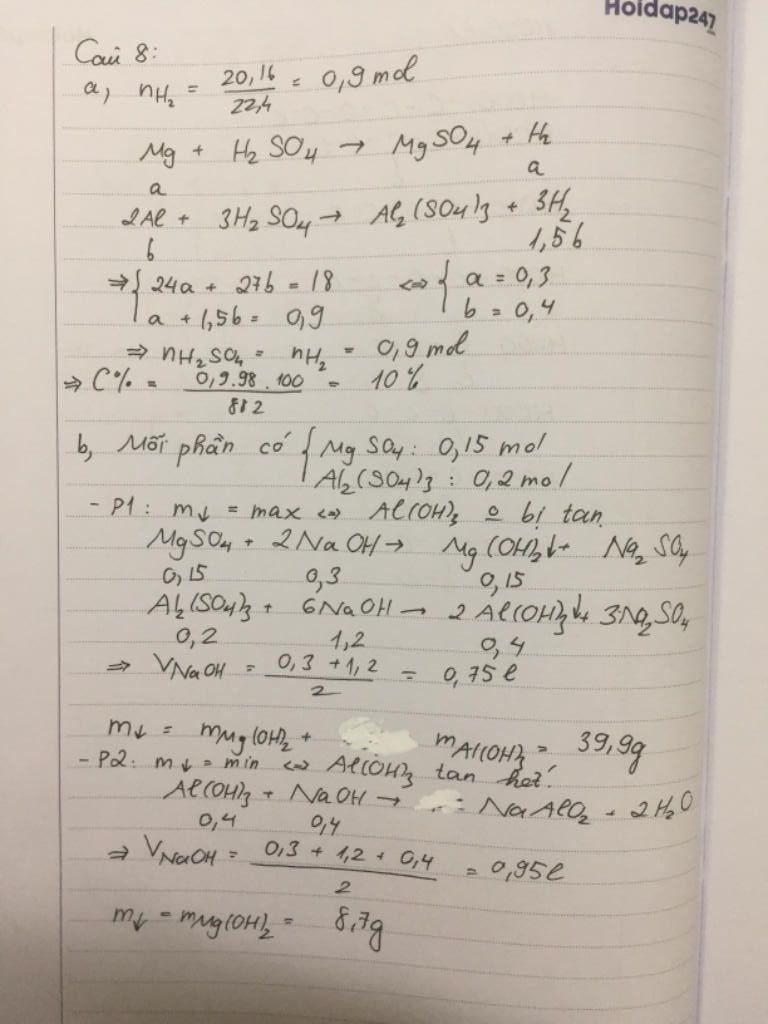 Hoidap247
Câu 8:
a, nH₂ = 20,16/22,4 = 0,9 mol
Mg + H₂SO₄ → MgSO₄ + H₂
a a
2Al + 3H₂SO₄ → Al₂(SO₄)₃ + 3H₂
b 1,5b
⇒ { 24a + 27b = 18 ⇔ { a = 0,3
a + 1,5b = 0,9 b = 0,4
⇒ nH₂SO₄ = nH₂ = 0,9 mol
⇒ C% = 0,9.98.100/882 = 10%
b, Mỗi phần có { MgSO₄: 0,15 mol
Al₂(SO₄)₃: 0,2 mol
- P1: m↓ = max ⇔ Al(OH)₃ o bị tan
MgSO₄ + 2NaOH → Mg(OH)₂↓ + Na₂SO₄
0,15 0,3 0,15
Al₂(SO₄)₃ + 6NaOH → 2Al(OH)₃↓ + 3Na₂SO₄
0,2 1,2 0,4
⇒ VNaOH = (0,3 + 1,2)/2 = 0,75 l
m↓ = mMg(OH)₂ + mAl(OH)₃ = 39,9g
- P2: m↓ = min ⇔ Al(OH)₃ tan hết.
Al(OH)₃ + NaOH → NaAlO₂ + 2H₂O
0,4 0,4
⇒ VNaOH = (0,3 + 1,2 + 0,4)/2 = 0,95l
m↓ = mMg(OH)₂ = 8,7g